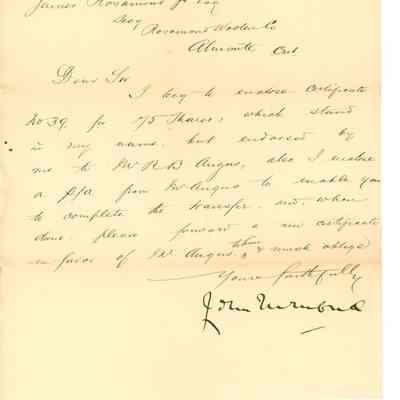 James Rosamond Jr Esq
Secy
Rosamond Woolen Co
Almonte Ont
Dear Sir
I beg to enclose certificate
No 39 for 75 Shares, which stand
in my name, but endorsed by
me to Mr R B Angus, also I enclose
a P/a from Mr Angus to enable you
to complete the transfer. and, when
done please forward a new certificate
in favor of Mr Angus, & much oblige
Yours faithfully
John